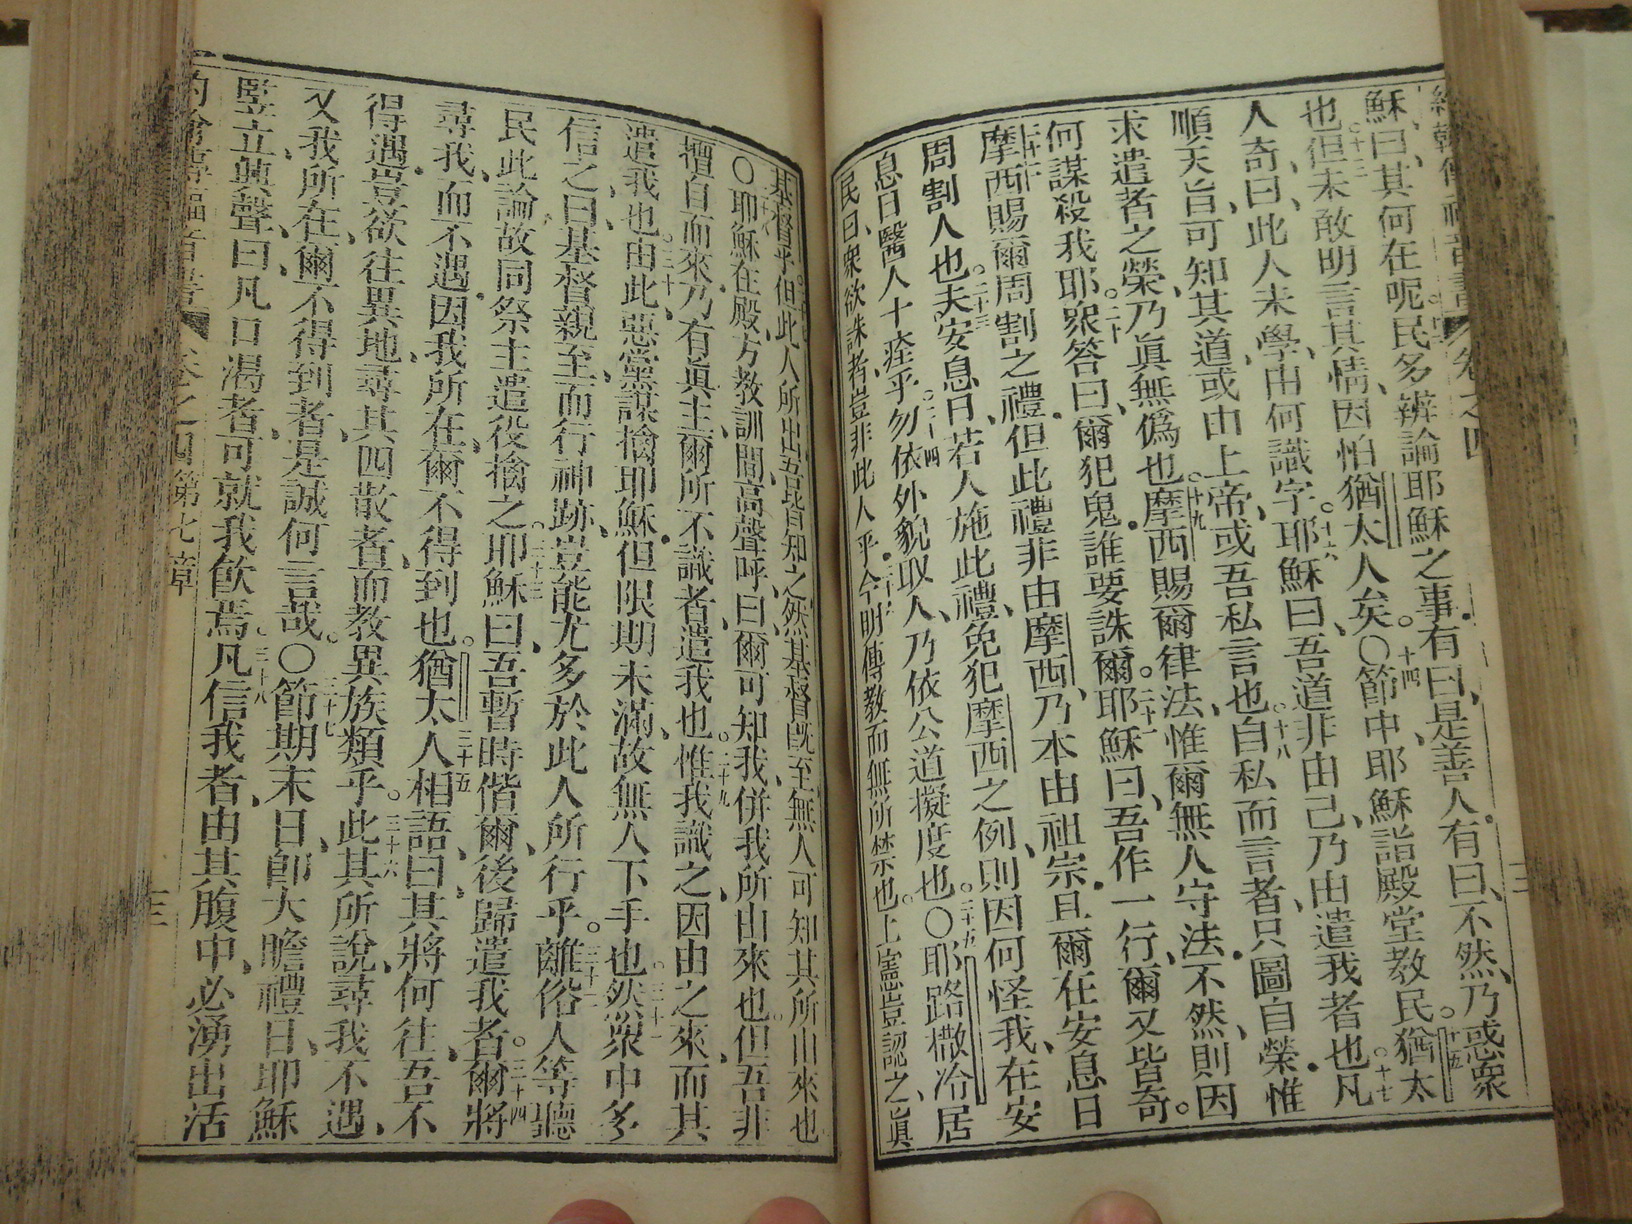 蘇曰、其何在呢民多辨論耶穌之事.有曰、是善人有曰、不然、乃惑衆
也.十三但未敢明言其情、因怕猶太人矣。○十四節中、耶穌詣殿堂教民。十五猶太
人奇曰、此人未學、由何識字。十六耶穌曰、吾道非由己、乃由遣我者也。十七凡
順天旨、可知其道、或由上帝、或吾私言也。十八自私而言者、只圖自榮.惟
求遣者之榮、乃眞無僞也。十九摩西賜爾律法、惟爾無人守法.不然、則因
何謀殺我耶。二十衆答曰、爾犯鬼.誰要誅爾。二十一耶穌曰、吾作一行、爾又皆奇。
摩西賜爾周割之禮.但此禮非由摩西、乃本由祖宗.且爾在安息日
周割人也。二十三夫安息日、若人施此禮、免犯摩西之例、則因何怪我、在安
息日醫人十痊乎。二十四勿依外貌取人、乃依公道擬度也。○二十五耶路撒冷居
民曰、衆欲誅者、豈非此人乎.今明傳教而無所禁也。上憲豈認之、眞
基督乎.但此人所出吾皆知之、然基督旣至、無人可知其所由來也
○耶穌在殿、方教訓間、高聲呼曰、爾可知我、併我所由來也.但吾非
擅自而來、乃有眞主、爾所不識者、遣我也。二十九惟我識之、因由之來、而其
遣我也.三十由此、惡黨謀擒耶穌.但限期未滿、故無人下手也.三十一然衆中多
信之、曰、基督親至、而行神跡、豈能尤多於此人所行乎。三十二離俗人等、聽
民此論、故同祭主遣役擒之。三十三耶穌曰、吾暫時偕爾、後歸遣我者。三十四爾將
尋我、而不遇.因我所在、爾不得到也。三十五猶太人相語、曰、其將何往、吾不
得遇.豈欲往異地、尋其四散者、而教異族類乎。三十六此其所說、尋我不遇、
又我所在、爾不得到者、是誠何言哉。○三十七節期末日、卽大瞻禮日、耶穌
豎立、興聲曰、凡口渴者、可就我飮焉。三十八凡信我者、由其腹中、必湧出活
卷之四第七章